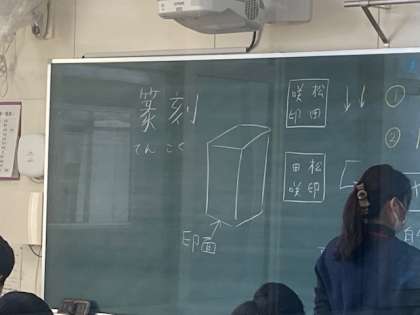 篆刻
てんこく
印面
松田
咲印
①
松田
咲印
②
自